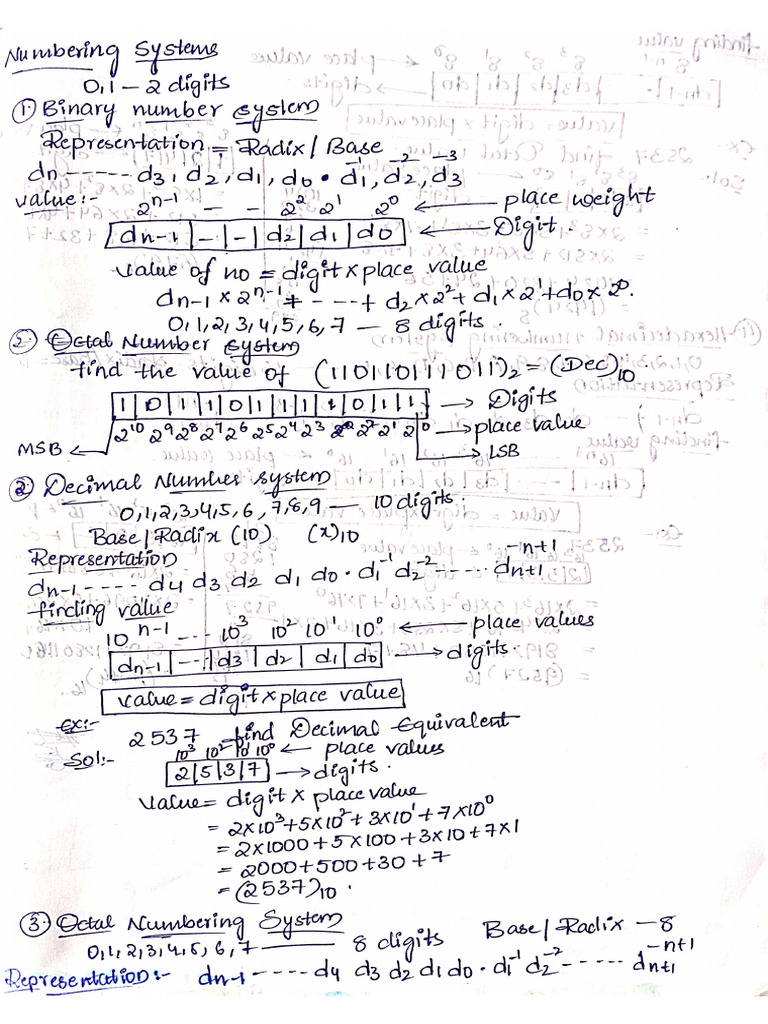 Numbering Systems
0,1 – 2 digits
① Binary number system
Representation = Radix / Base
dn ------ d3, d2, d1, d0 . d1⁻¹, d2⁻², d3⁻³
value :- 2ⁿ⁻¹ - - 2² 2¹ 2⁰ ← place weight
dn-1 | - | - | d2 | d1 | d0 ← Digit.
value of no = digit x place value
dn-1 x 2ⁿ⁻¹ + - --+ d2 x 2² + d1 x 2¹ + d0 x 2⁰.
0,1,2,3,4,5,6,7 — 8 digits.
② Octal Number system
find the value of (11011011101 1)₂ = (Dec)₁₀
1 | 0 | 1 | 1 | 0 | 1 | 1 | 1 | 1 | 0 | 1 | 1 → Digits
2¹⁰ 2⁹ 2⁸ 2⁷ 2⁶ 2⁵ 2⁴ 2³ 2² 2¹ 2⁰ → place value
MSB ← → LSB
② Decimal Number system
0,1,2,3,4,5,6,7,8,9 — 10 digits.
Base / Radix (10) (x)10
Representation
dn-1 ------ d4 d3 d2 d1 d0 . d1⁻¹ d2⁻² ----- dn+1⁻ⁿ⁺¹
finding value
10ⁿ⁻¹ --- 10³ 10² 10¹ 10⁰ ← place values
dn-1 | --- | d3 | d2 | d1 | d0 → digits.
value = digit x place value
Ex:- 2537 find Decimal Equivalent
Sol:- 10³ 10² 10¹ 10⁰ ← place values
2|5|3|7 → digits.
value = digit x place value
= 2x10³+5x10²+3x10¹+7x10⁰
= 2x1000+5x100+3x10+7x1
= 2000+500+30+7
= (2537)10.
③ Octal Numbering System
0,1,2,3,4,5,6,7 —— 8 digits Base / Radix – 8
Representation:- dn-1 ----- d4 d3 d2 d1 d0 . d1⁻¹ d2⁻² ----- dn+1⁻ⁿ⁺¹